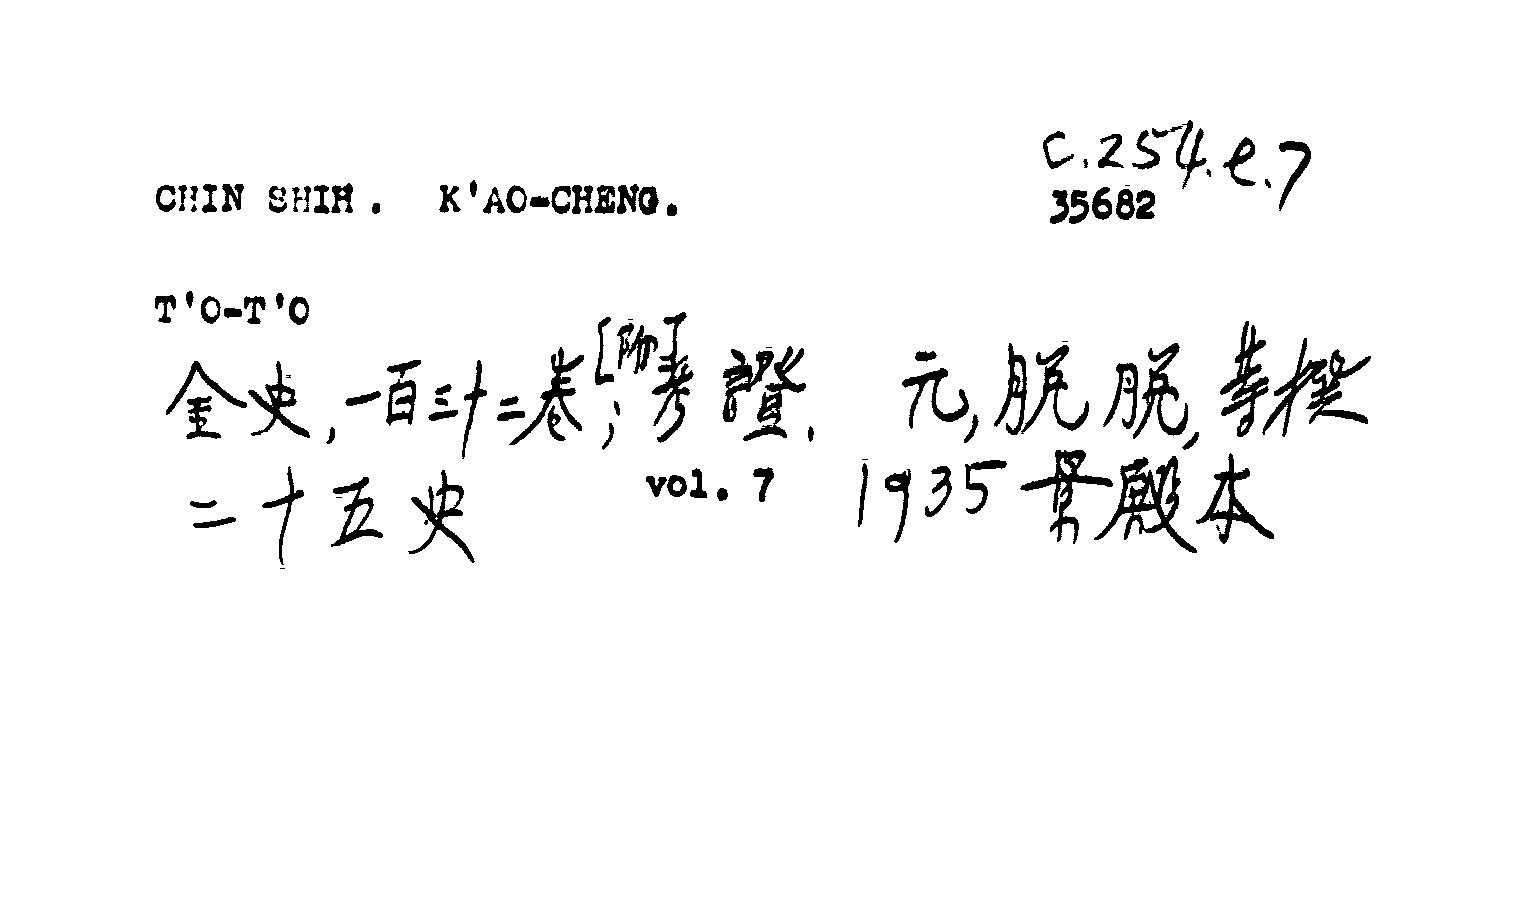 C.254.e.7
CHIN SHIH. K'AO-CHENG. 35682
T'O-T'O
金史,一百三十二卷;[附]考證. 元,脫脫,等撰
二十五史 vol. 7 1935 景殿本